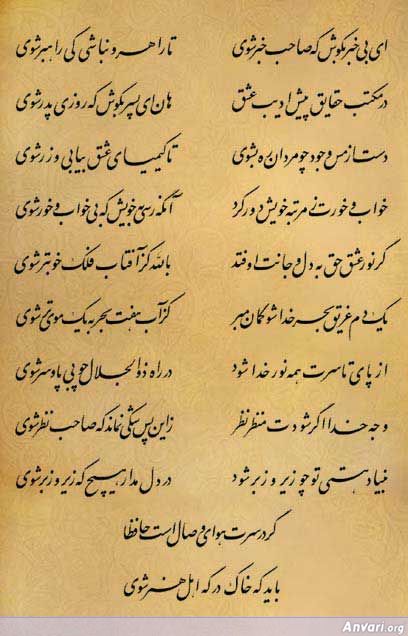 ای بی خبر بکوش که صاحب خبر شوی تا راهرو نباشی کی راهبر شوی
در مکتب حقایق پیش ادیب عشق هان ای پسر بکوش که روزی پدر شوی
دست از مس وجود چو مردان ره بشوی تا کیمیای عشق بیابی و زر شوی
خواب و خورت ز مرتبه خویش دور کرد آنگه رسی به خویش که بی خواب و خور شوی
گر نور عشق حق به دل و جانت اوفتد بالله کز آفتاب فلک خوبتر شوی
یک دم غریق بحر خدا شو گمان مبر کز آب هفت بحر به یک موی تر شوی
از پای تا سرت همه نور خدا شود در راه ذوالجلال چو بی پا و سر شوی
وجه خدا اگر شودت منظر نظر زین پس شکی نماند که صاحب نظر شوی
بنیاد هستی تو چو زیر و زبر شود در دل مدار هیچ که زیر و زبر شوی
گر در سرت هوای وصال است حافظا
باید که خاک درگه اهل هنر شوی
Anvari.org